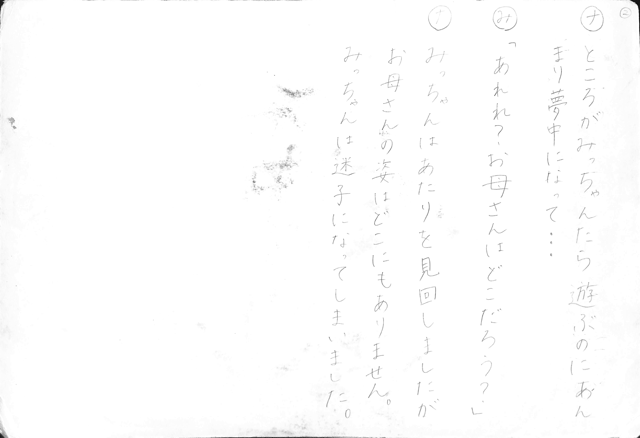 ㊁
ナ ところがみっちゃんたら遊ぶのにあん
まり夢中になって…
み 「あれれ？お母さんはどこだろう？」
ナ みっちゃんはあたりを見回しましたが
お母さんの姿はどこにもありません。
みっちゃんは迷子になってしまいました。